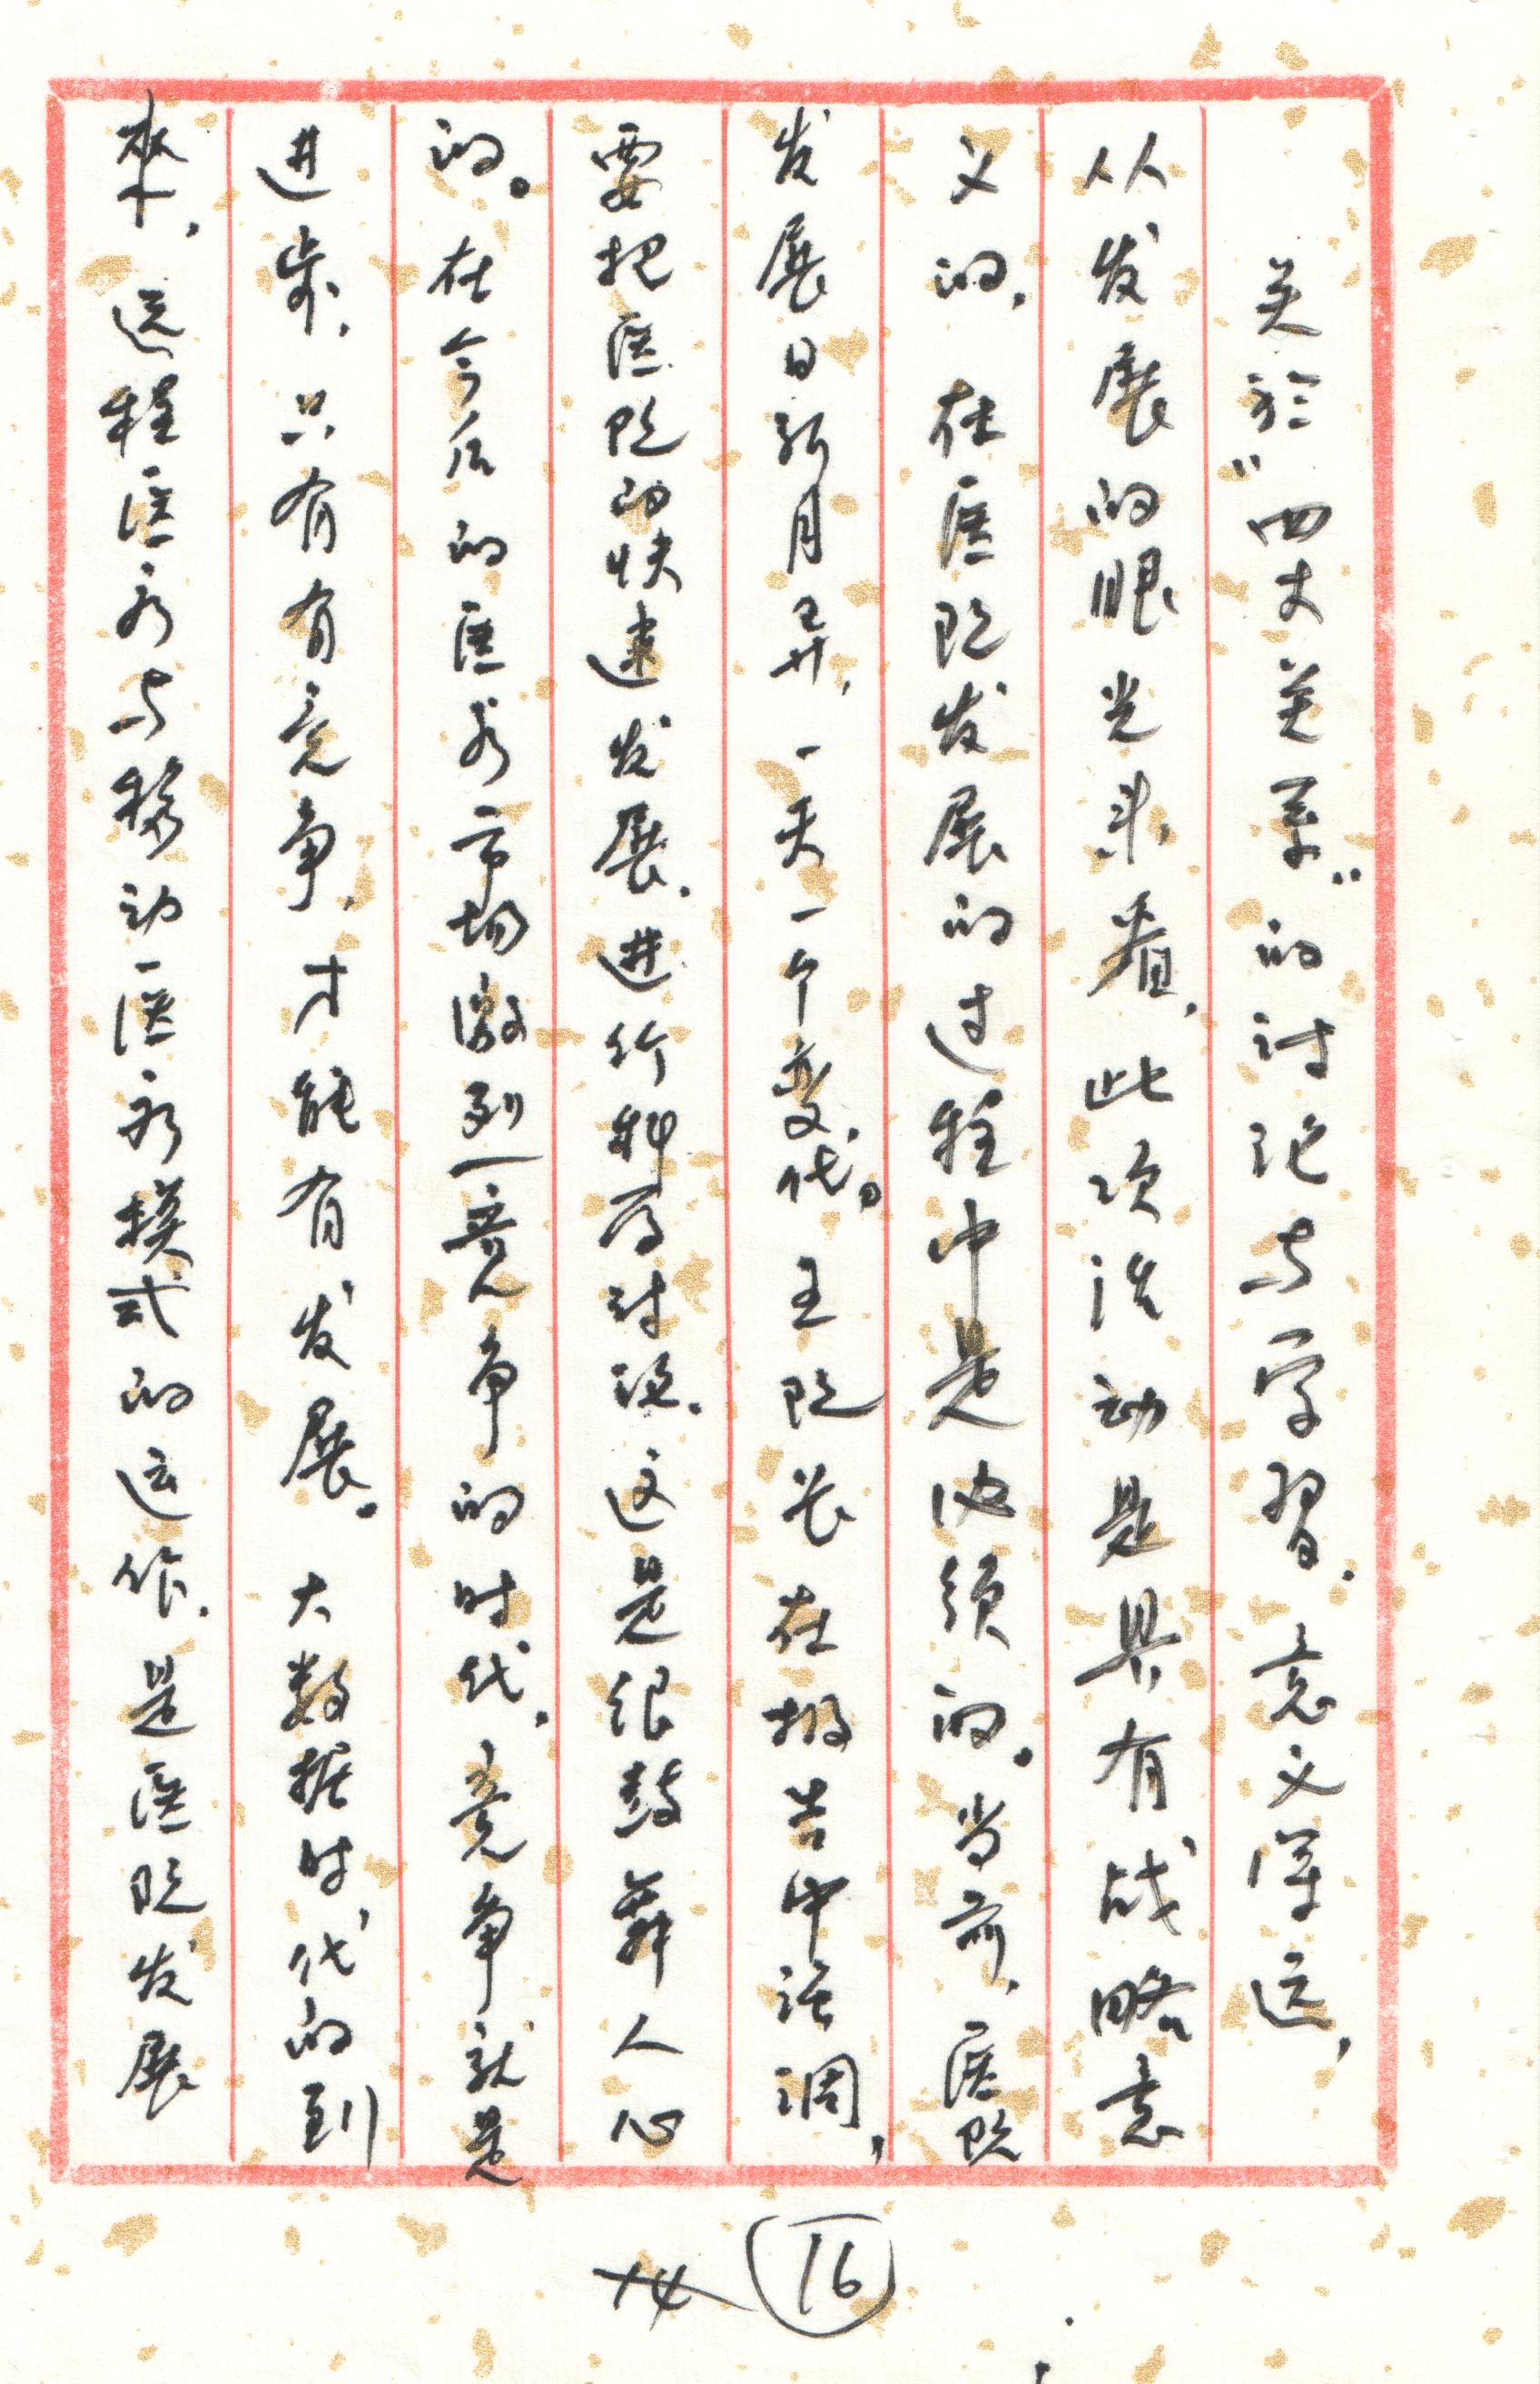 关於“四大关系”的讨论与学习．意义深远，
从发展的眼光来看，此次活动是具有战略意
义的，在医院发展的过程中是必须的。当前，医院
发展日新月异，一天一个变化。王院长在报告中强调，
要把医院的快速发展，进行科学讨论．这是很鼓舞人心
的。在今后的医疗市场激烈竞争的时代，竞争就是
进步，只有有竞争，才能有发展。大数据时代的到
来，远程医疗与移动医疗模式的运作，是医院发展
16